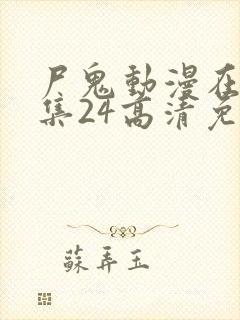 尸鬼動漫在
集24高清免
蘇弄玉